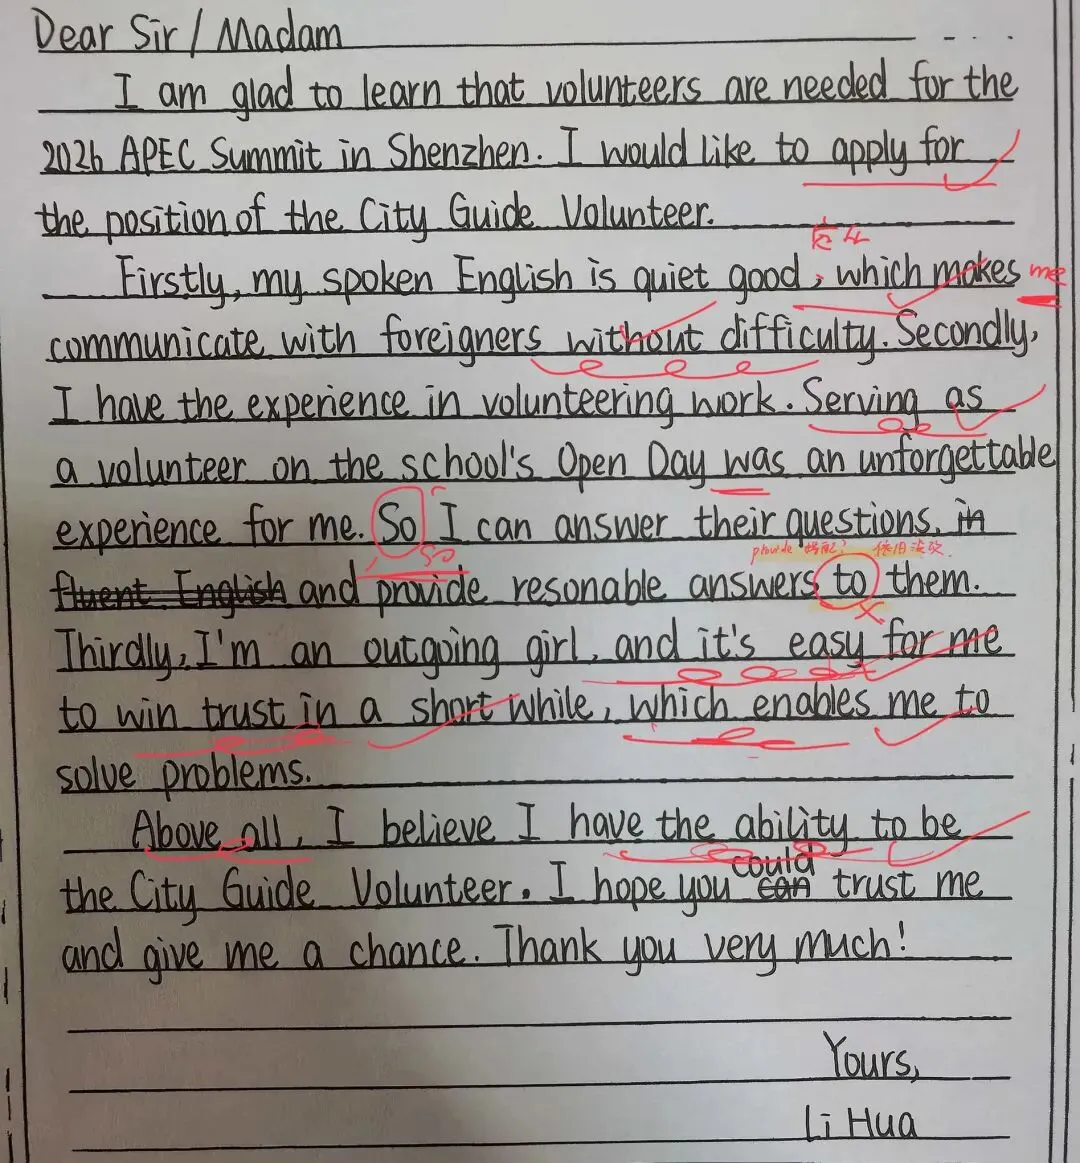 Dear Sir / Madam
I am glad to learn that volunteers are needed for the
2026 APEC Summit in Shenzhen. I would like to apply for
the position of the City Guide Volunteer.
Firstly, my spoken English is quiet good, which makes me
communicate with foreigners without difficulty. Secondly,
I have the experience in volunteering work. Serving as
a volunteer on the school's Open Day was an unforgettable
experience for me. So I can answer their questions. in
so
provide 搭配?
fluent English and provide resonable answers to them.
Thirdly, I'm an outgoing girl, and it's easy for me
to win trust in a short while, which enables me to
solve problems.
Above all, I believe I have the ability to be
could
the City Guide Volunteer. I hope you can trust me
and give me a chance. Thank you very much!
Yours,
Li Hua